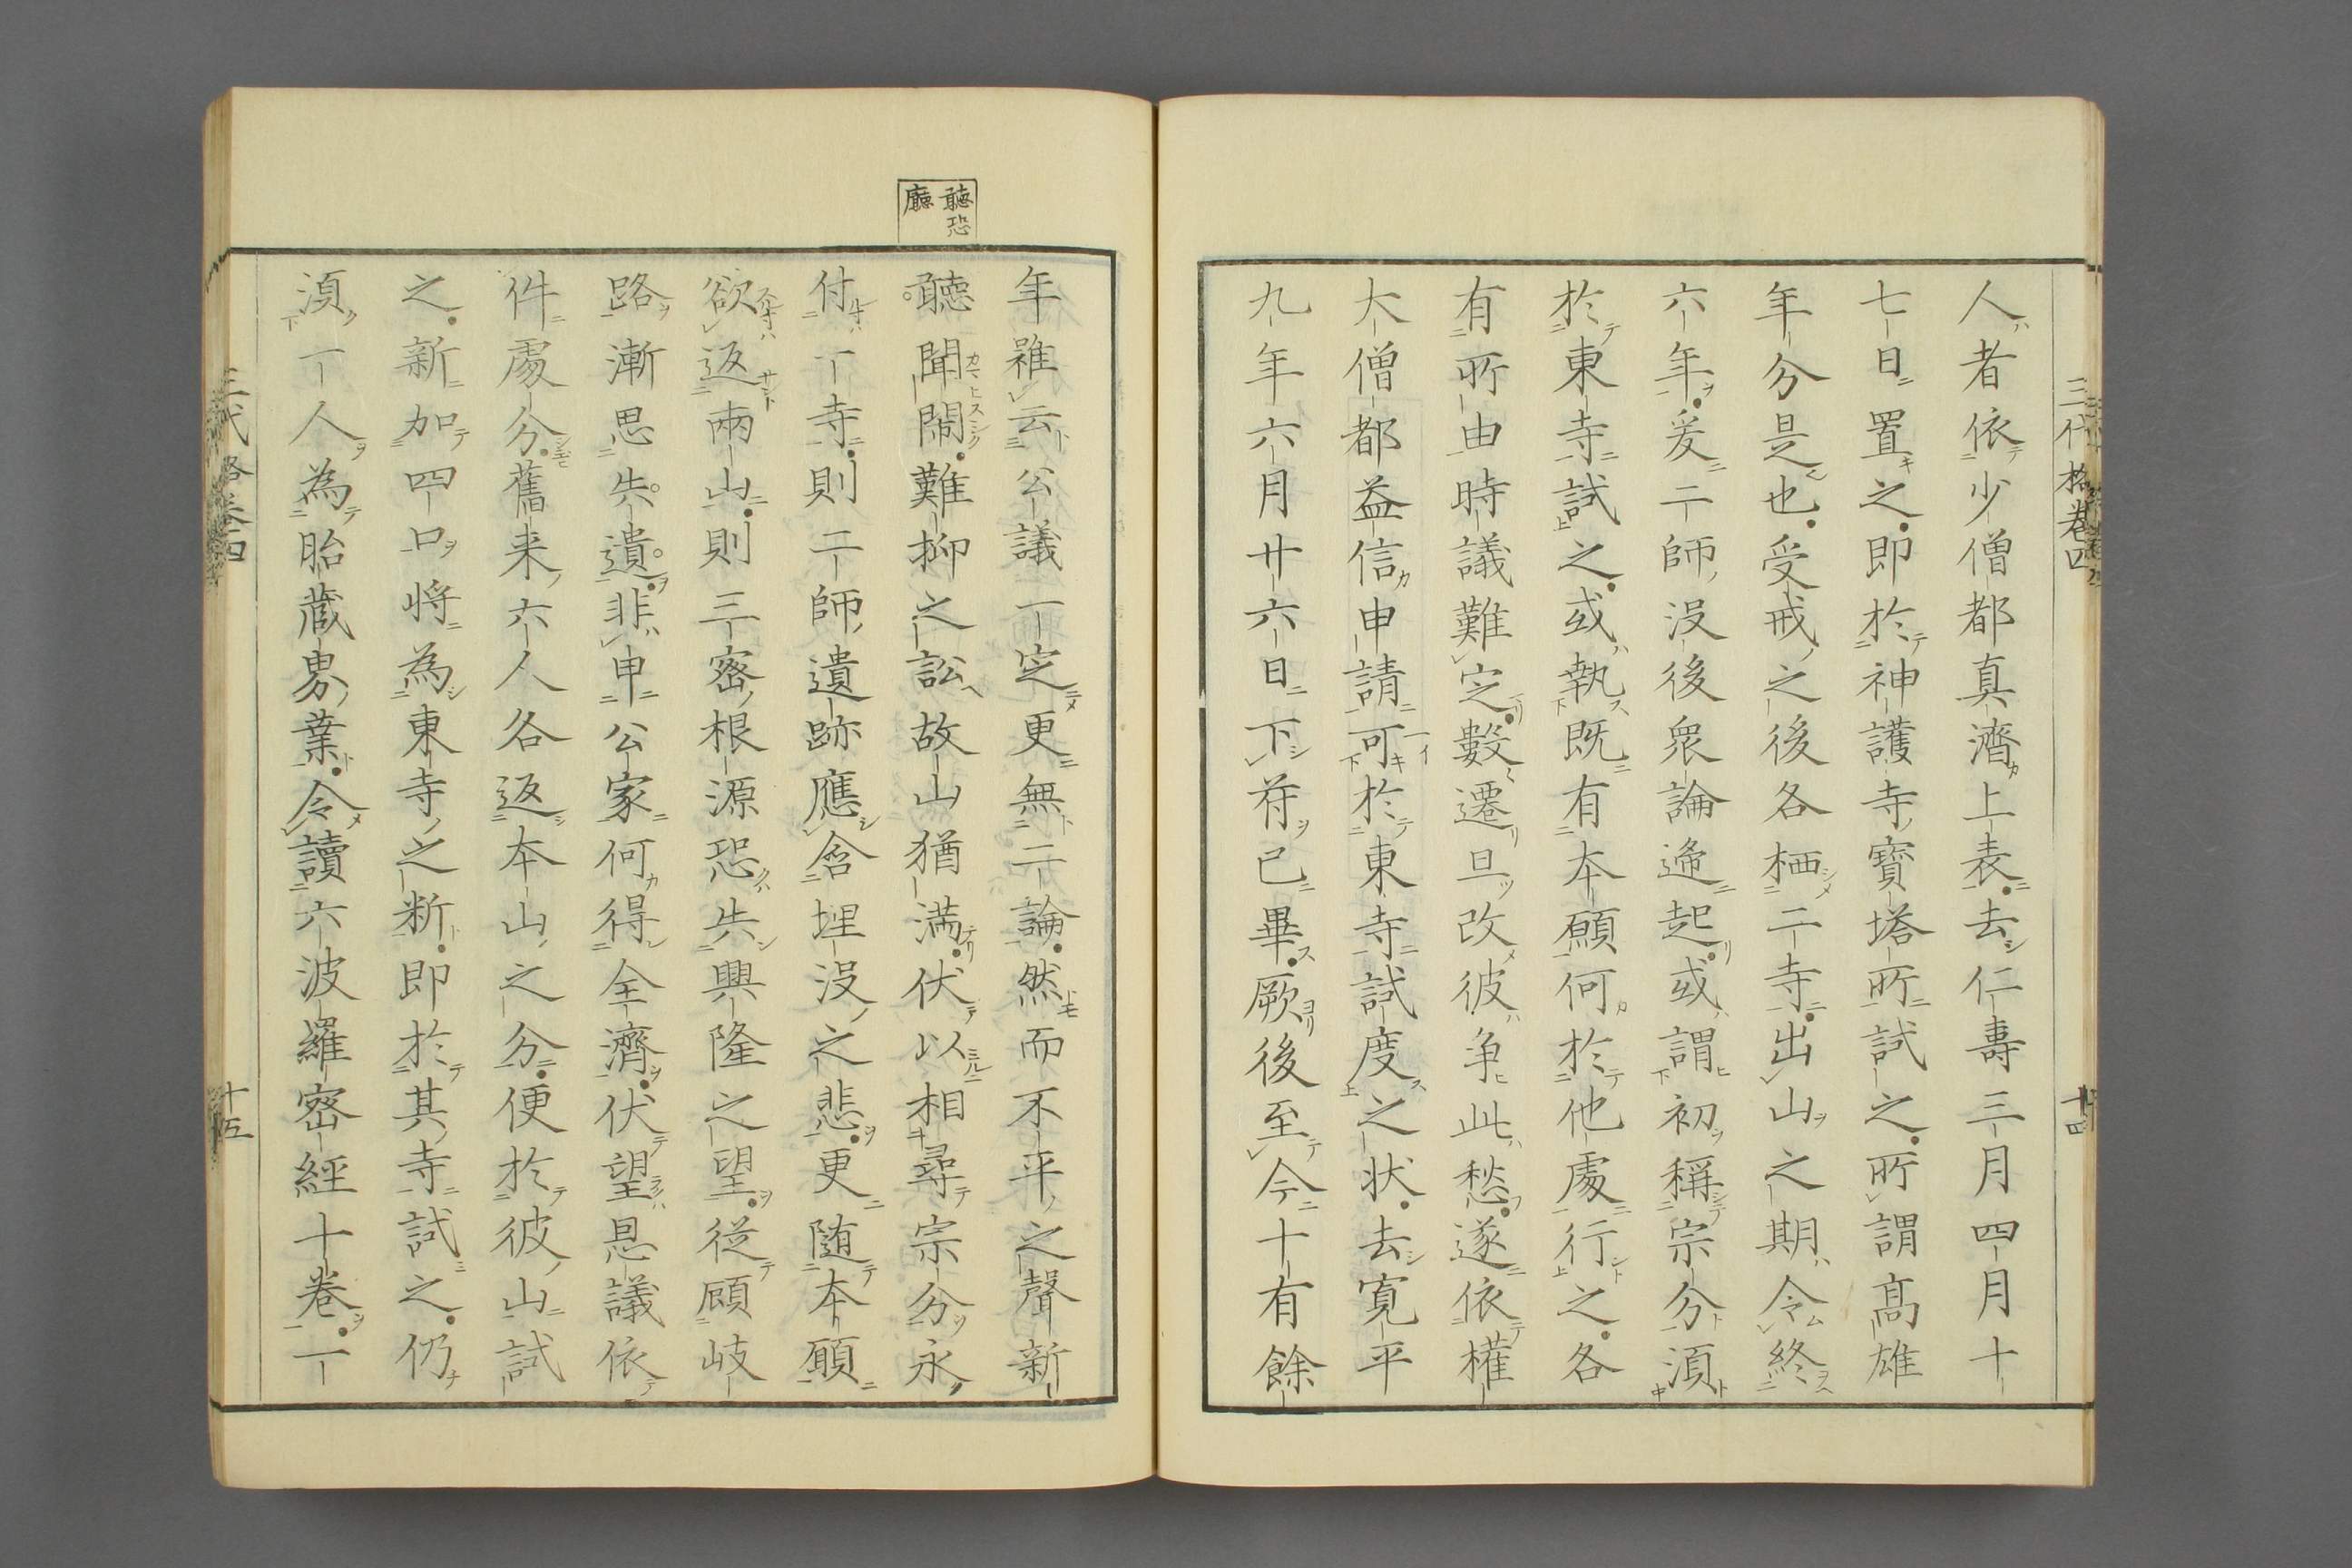 三代格卷四
十四
人者依少僧都真濟上表去仁壽三月四月十
七日置之即於神護寺寶塔所試之所謂髙雄
年分是也受戒之後各栖二寺出山之期令終
六年爰二師没後衆論逓起或謂初稱宗分湏
於東寺試之或執既有本願何於他處行之各
有所由時議難定數遷旦改彼争此愁遂依權
大僧都益信申請可於東寺試度之状去寛平
九年六月廿六日下符已畢厥後至今十有餘
聴恐
廳
年雖云公議一定更無二論然而不平之聲新
聴聞閙難抑之訟故山猶満伏以相尋宗分永
付一寺則二師遺跡應含埋没之悲更随本願
欲返兩山則三密根源恐失興隆之望従顧岐
路漸思失遺非申公家何得全濟伏望恩議依
件處分舊来六人各返本山之分便於彼山試
之新加四口将為東寺之断即於其寺試之仍
湏一人為胎蔵界業令讀六波羅密經十卷一
三代格卷四
十五